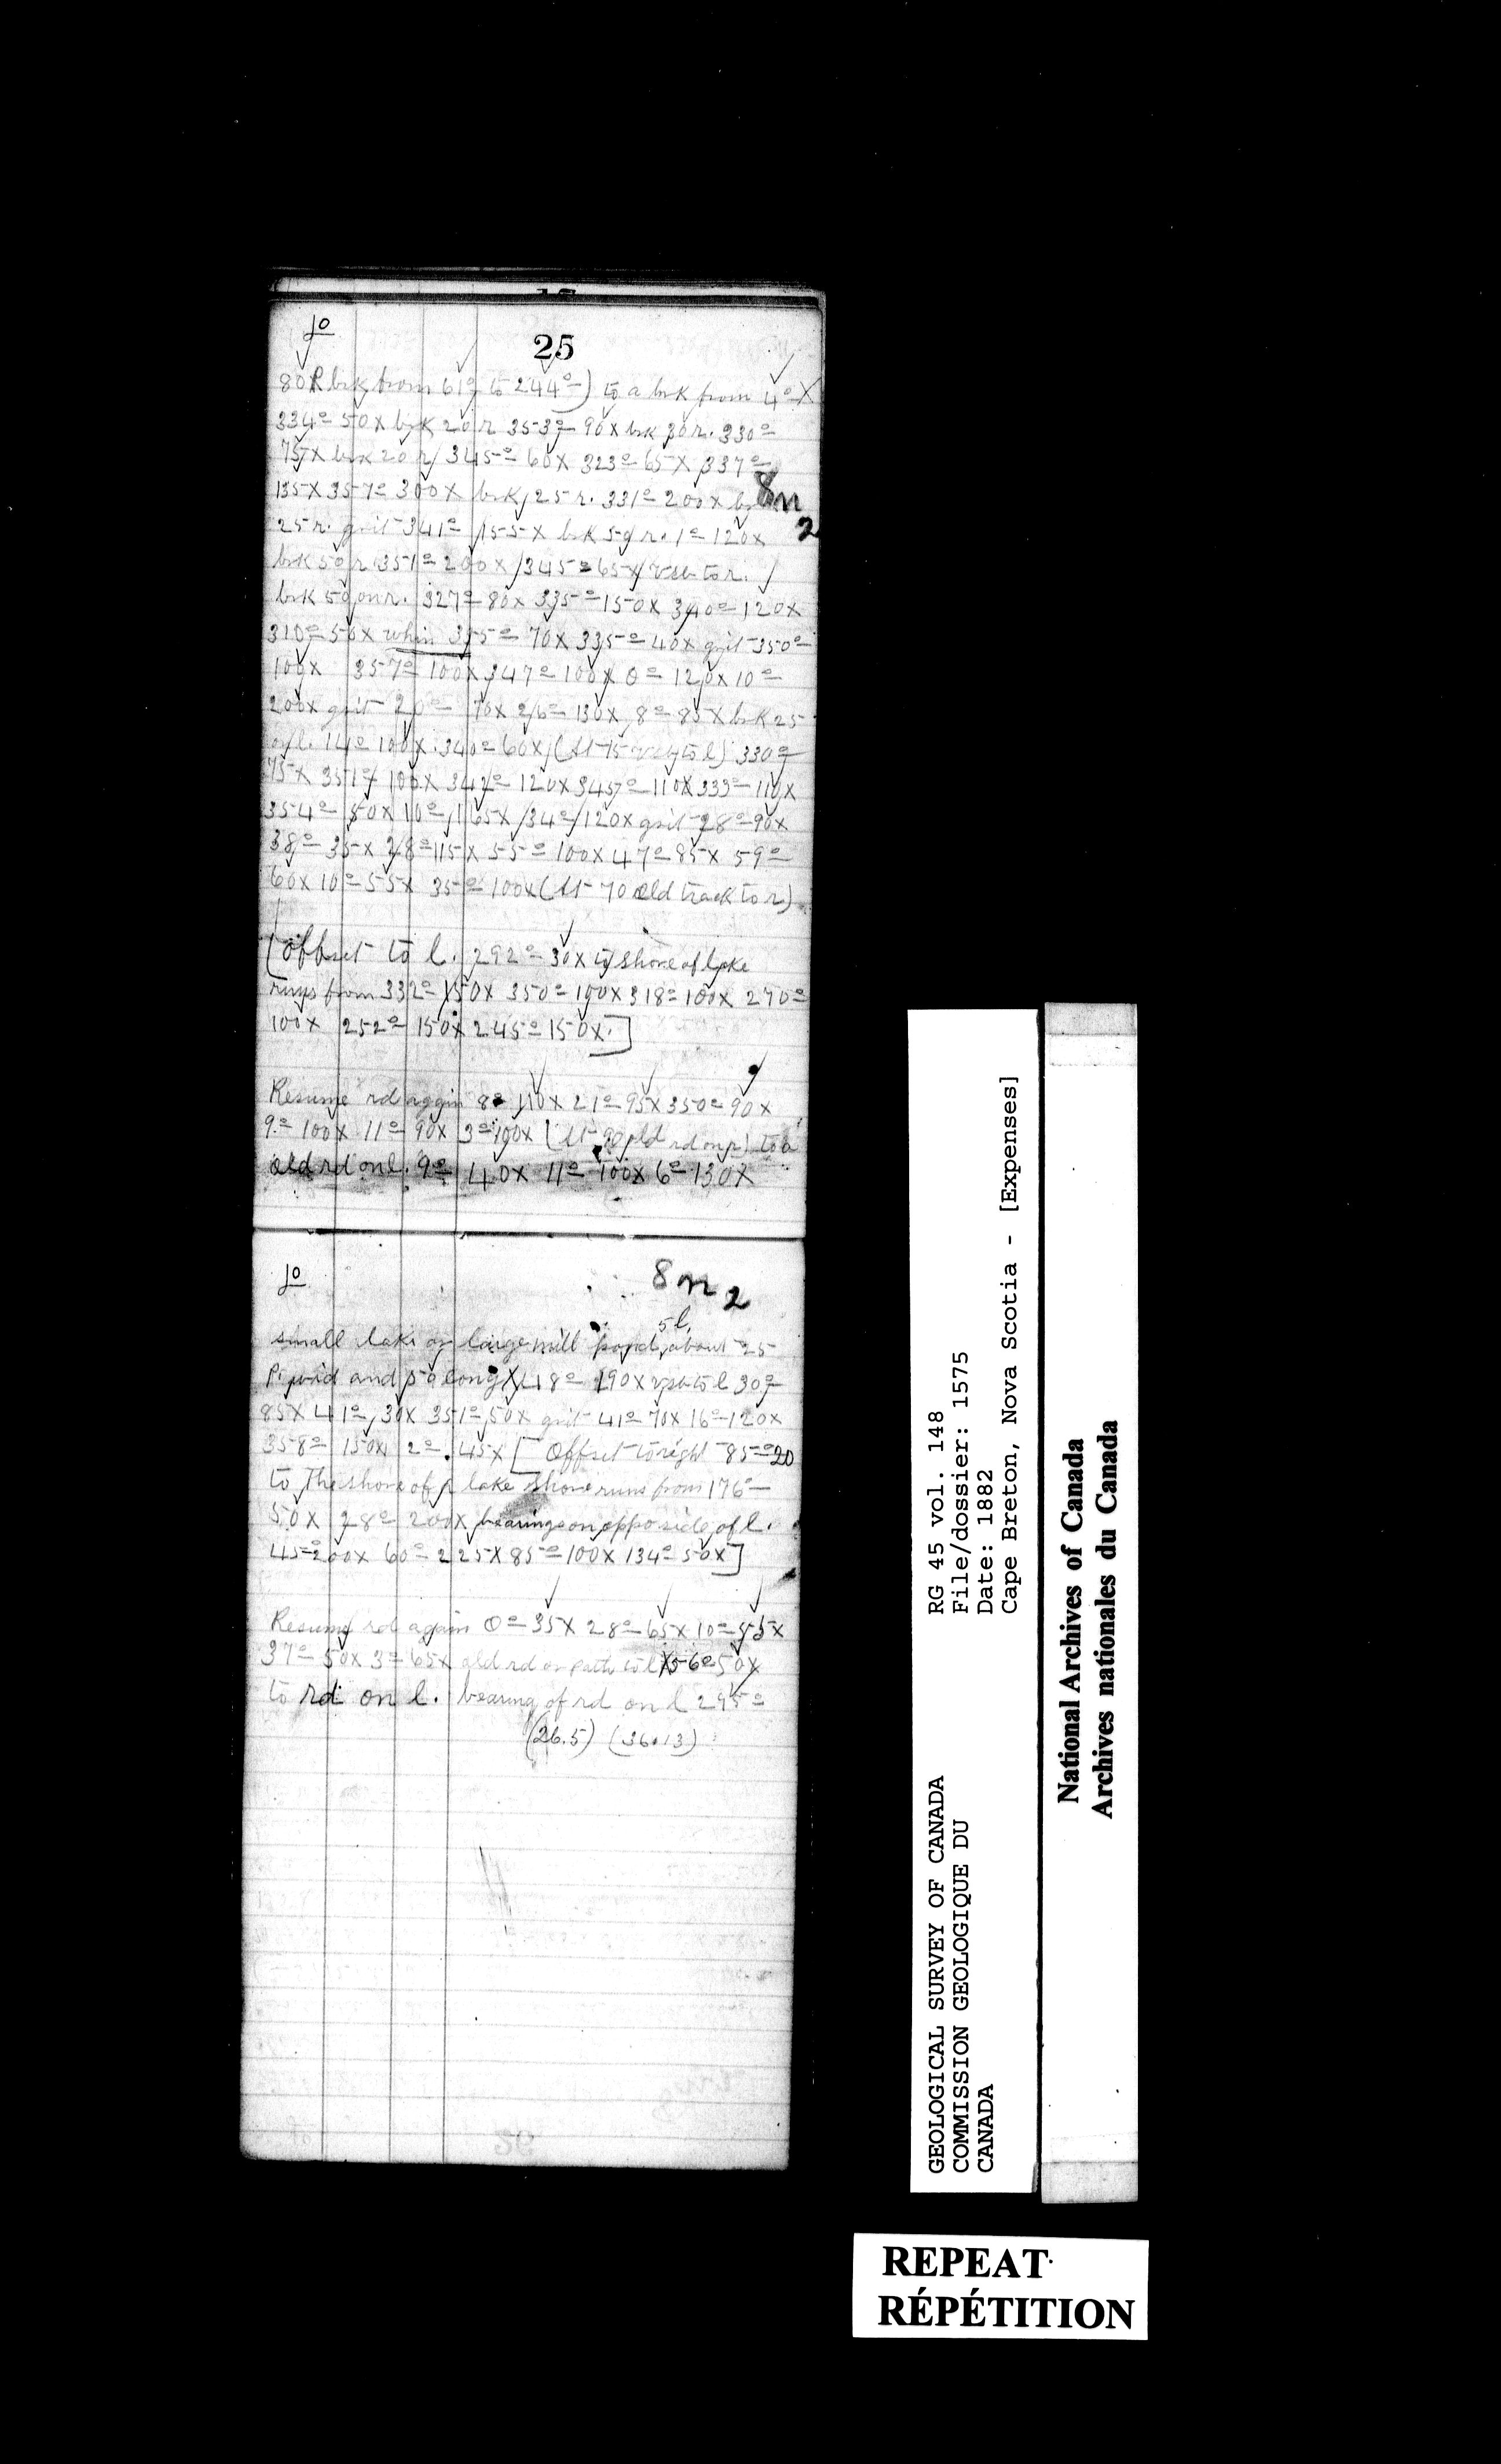 10
25
80 R brk from 61° to 244°) to a brk from 4° X
334° 50 X brk 20 r 353° 90 X brk 30 r. 330°
75 X brk 20 r 345° 60 X 323° 65 X 337°
135 X 357° 300 X brk 25 r. 331° 200 X
8 n 2
25 r. grit 341° 155 X brk 50 r. 1° 120 X
brk 50 r 351° 200 X 345° 65 X to r.
brk 50 on r. 327° 80 X 335° 150 X 340° 120 X
310° 50 X whin 355° 70 X 335° 40 X grit 350°
100 X 357° 100 X 347° 100 X 0° 120 X 10°
200 X grit 20° 70 X 26° 130 X 8° 85 X brk 25
l. 14° 100 X 340° 60 X (At 15 to l) 330°
75 X 351° 100 X 342° 120 X 345° 110 X 333° 110 X
354° 50 X 10° 165 X 34° 120 X grit 28° 90 X
38° 35 X 28° 115 X 55° 100 X 47° 85 X 59°
60 X 10° 55 X 35° 100 X (At 70 old track to r)
[Offset to l. 292° 30 X to shore of lake
runs from 332° 150 X 350° 100 X 318° 100 X 270°
100 X 252° 150 X 245° 150 X.]
Resume rd again 8° 110 X 21° 95 X 350° 90 X
9° 100 X 11° 90 X 3° 100 X (At 90 old rd on r) to a
old rd on l. 9° 40 X 11° 100 X 6° 130 X
10
8 n 2
5 l.
small lake or large mill pond, about 25
P. wid and 50 long X 48° 190 X to l 30°
85 X 41° 30 X 351° 50 X grit 41° 70 X 16° 120 X
358° 150 X 2° 45 X [Offset to right 85° 20
to the shore of lake shore runs from 176°
50 X 28° 200 X bearings on oppo side of l.
45° 200 X 60° 225 X 85° 100 X 134° 50 X]
Resume rd again 0° 35 X 28° 65 X 10° 55 X
37° 50 X 3° 65 X old rd or path to l X 56° 50 X
to rd on l. bearing of rd on l 295°
(26.5) (36.13)
GEOLOGICAL SURVEY OF CANADA
COMMISSION GEOLOGIQUE DU
CANADA
RG 45 vol. 148
File/dossier: 1575
Date: 1882
Cape Breton, Nova Scotia - [Expenses]
National Archives of Canada
Archives nationales du Canada
REPEAT
RÉPÉTITION